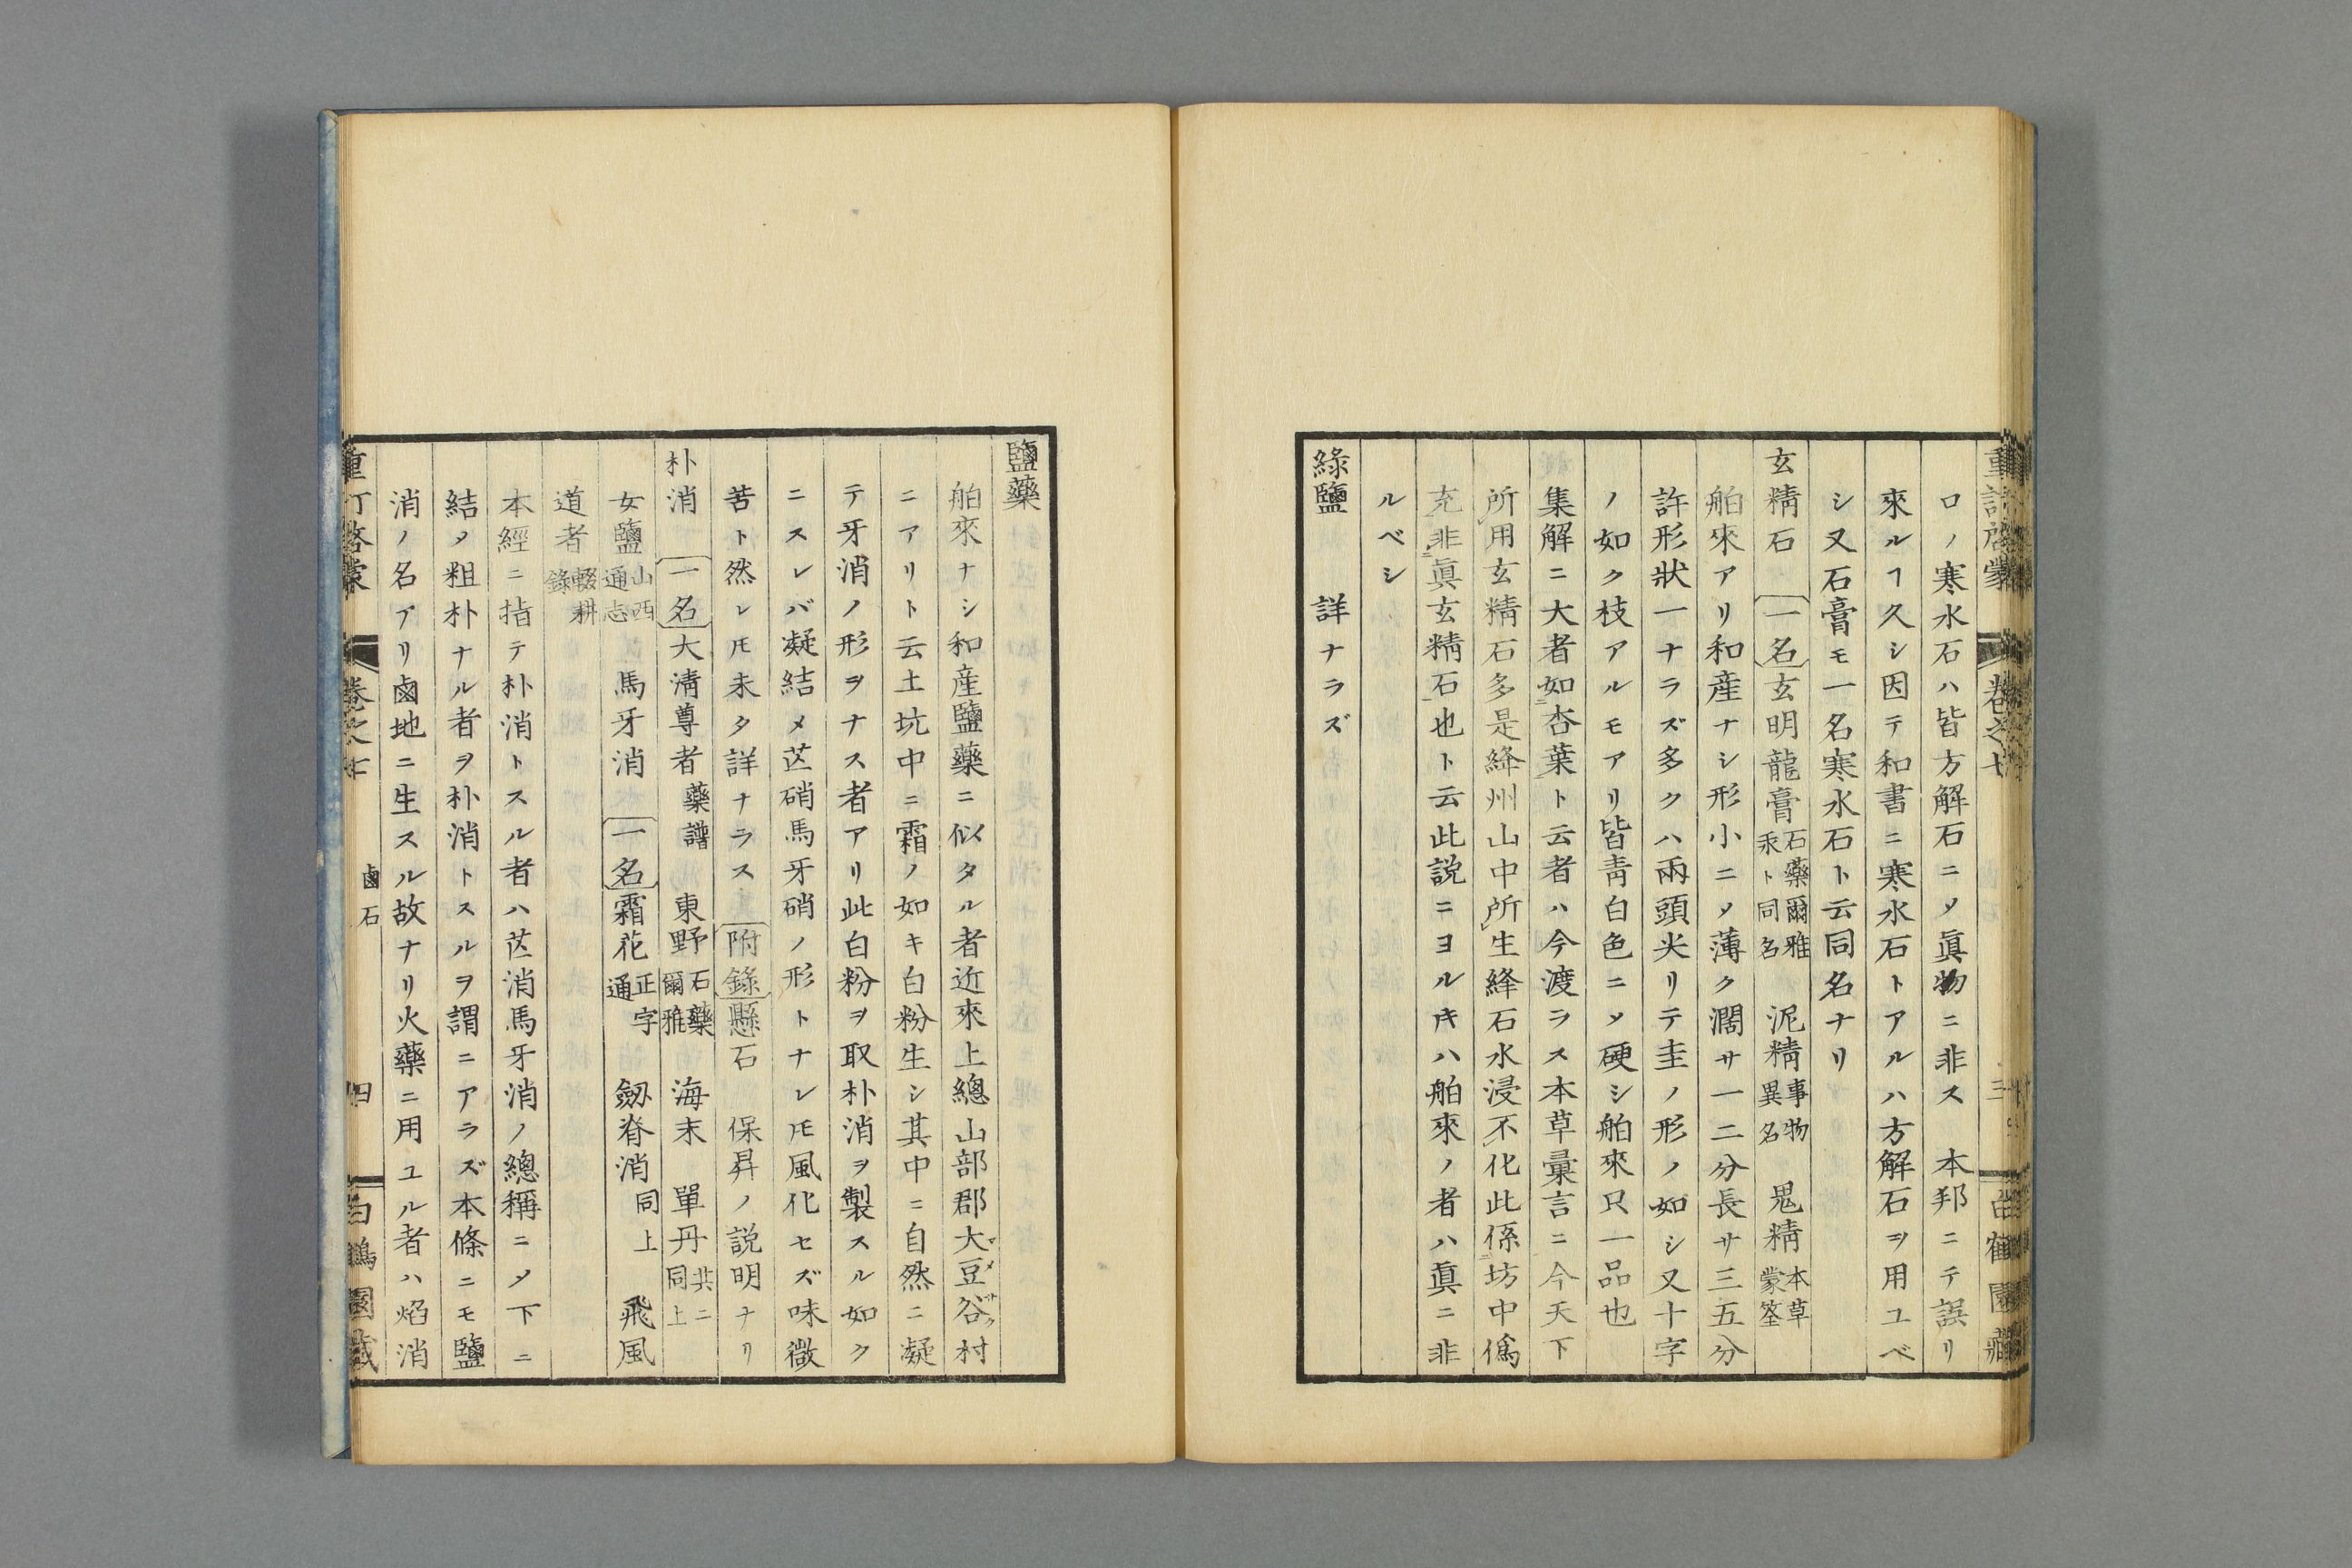 重訂啓蒙 卷之七 三 白鶴園藏
ロノ寒水石ハ皆方解石ニ〆眞物ニ非ス 本邦ニテ誤リ
來ルヿ久シ因テ和書ニ寒水石トアルハ方解石ヲ用ユベ
シ又石膏モ一名寒水石ト云同名ナリ
玄精石 一名玄明龍膏石藥爾雅汞ト同名 泥精事物異名 鬼精本草蒙筌
舶來アリ和産ナシ形小ニ〆薄ク濶サ一二分長サ三五分
許形狀一ナラズ多クハ兩頭尖リテ圭ノ形ノ如シ又十字
ノ如ク枝アルモアリ皆青白色ニ〆硬シ舶來只一品也
集解ニ大者如杏葉ト云者ハ今渡ラス本草彙言ニ今天下
所用玄精石多是絳州山中所生絳石水浸不化此係坊中僞
充非眞玄精石也ト云此説ニヨルキハ舶來ノ者ハ眞ニ非
ルベシ
綠鹽 詳ナラズ
鹽藥
舶來ナシ和産鹽藥ニ似タル者近來上總山部郡大豆谷村
ニアリト云土坑中ニ霜ノ如キ白粉生シ其中ニ自然ニ凝
テ牙消ノ形ヲナス者アリ此白粉ヲ取朴消ヲ製スル如ク
ニスレバ凝結〆芒硝馬牙硝ノ形トナレ𪜈風化セズ味微
苦ト然レ𪜈未タ詳ナラス 附錄懸石 保昇ノ説明ナリ
朴消 一名大清尊者藥譜 東野石藥爾雅 海末 單丹共ニ同上
女鹽山西通志 馬牙消 一名霜花正字通 劔脊消同上 飛風
道者輟耕錄
本經ニ指テ朴消トスル者ハ芒消馬牙消ノ總稱ニ〆下ニ
結〆粗朴ナル者ヲ朴消トスルヲ謂ニアラズ本條ニモ鹽
消ノ名アリ鹵地ニ生スル故ナリ火藥ニ用ユル者ハ焰消
重訂啓蒙 卷之七 鹵石 四 白鶴園藏